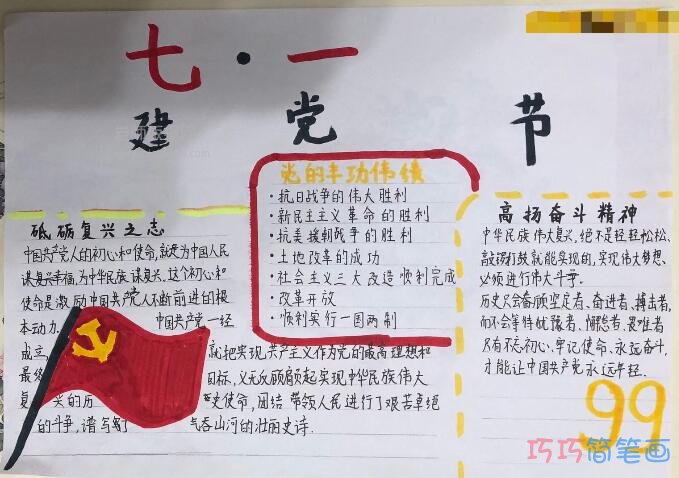 七·一
建党节
党的丰功伟绩
·抗日战争的伟大胜利
·新民主主义革命的胜利
·抗美援朝战争的胜利
·土地改革的成功
·社会主义三大改造顺利完成
·改革开放
·顺利实行一国两制
砥砺复兴之志
中国共产党人的初心和使命,就是为中国人民
谋复兴幸福,为中华民族谋复兴。这个初心和
使命是激励中国共产党人不断前进的根
本动力。中国共产党一经
成立,就把实现共产主义作为党的最高理想和
最终目标,义无反顾肩起实现中华民族伟大
复兴的历史使命,团结带领人民进行了艰苦卓绝
的斗争,谱写了气吞山河的壮丽史诗.
高扬奋斗精神
中华民族伟大复兴,绝不是轻轻松松、
敲锣打鼓就能实现的,实现伟大梦想、
必须进行伟大斗争。
历史只会眷顾坚定者、奋进者、搏击者,
而不会等待犹豫者、懈怠者、畏难者
只有不忘初心、牢记使命、永远奋斗,
才能让中国共产党永远年轻.
99
巧巧简笔画